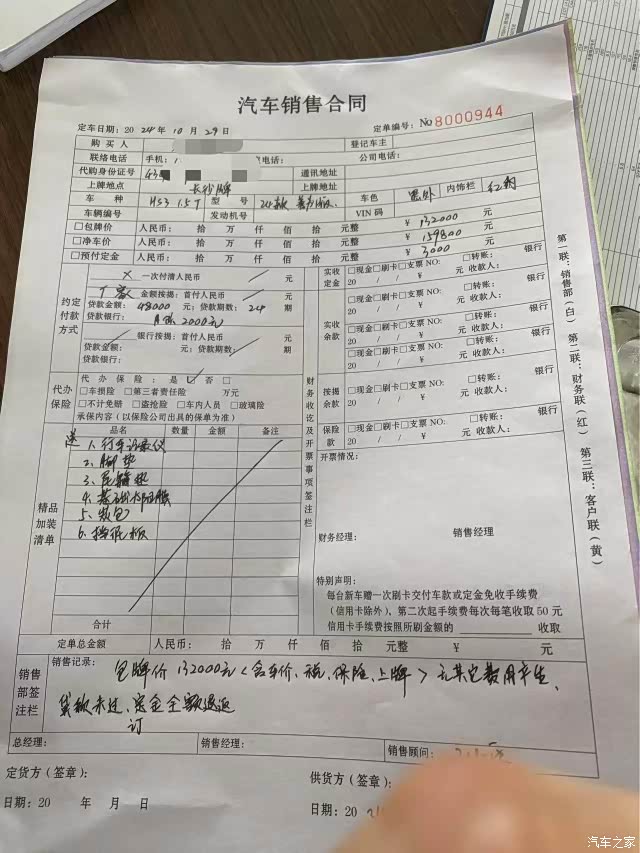 汽车销售合同
定车日期：2024年10月29日 定单编号：No 8000944
购买人 登记车主
联络电话 手机：1 电话： 公司电话：
代购身份证号 43 通讯地址
上牌地点 长沙牌 上牌地址
车种 HS3 1.5T 型号 24款 车色 内饰栏
车辆编号 发动机号 VIN 码
□包牌价 人民币： 拾 万 仟 佰 拾 元整 ￥132000 元
□净车价 人民币： 拾 万 仟 佰 拾 元整 ￥159800 元
□预付定金 人民币： 拾 万 仟 佰 拾 元整 ￥3000 元
约定付款方式
× 一次付清人民币 元
金额按揭：首付人民币 元
贷款金额：48000元 贷款期数：24 期
贷款银行： 2000元
银行按揭：首付人民币 元
贷款金额： 元 贷款期数： 期
贷款银行：
财务收讫及开票事项签注栏
实收定金 □现金□刷卡□支票 NO: □转账： 银行
20 / / ￥ 元 收款人：
实收余款 □现金□刷卡□支票 NO: □转账： 银行
20 / / ￥ 元 收款人：
□现金□刷卡□支票 NO: □转账： 银行
20 / / ￥ 元 收款人：
□现金□刷卡□支票 NO: □转账： 银行
20 / / ￥ 元 收款人：
按揭余款 □现金□刷卡□支票 NO: □转账： 银行
20 / / ￥ 元 收款人：
保险款 □现金□刷卡□支票 NO: □转账： 银行
20 / / ￥ 元 收款人：
代办保险
代办保险：是□否□
□车损险 □第三者责任险 万元
□不计免赔 □盗抢险 □车内人员 □玻璃险
承保内容（以保险公司出具的保单为准）
精品加装清单
品名 数量 金额 备注
送 1.行车记录仪
2.脚垫
3.尾箱垫
4.
5.
6.挡泥板
合计
开票情况：
财务经理： 销售经理
特别声明：
每台新车赠一次刷卡交付车款或定金免收手续费
（信用卡除外）、第二次起手续费每次每笔收取 50 元
信用卡手续费按照所刷金额的 收取
定单总金额 人民币： 拾 万 仟 佰 拾 元整 ￥ 元
销售部签注栏
销售记录： 包牌价132000元<含车价、税、保险、上牌>无其它费用产生、
贷款未过、定金全额退返
订
总经理： 销售经理： 销售顾问：
定货方（签章）： 供货方（签章）：
日期：20 年 月 日 日期：20
第一联：销售部（白） 第二联：财务联（红） 第三联：客户联（黄）
汽车之家